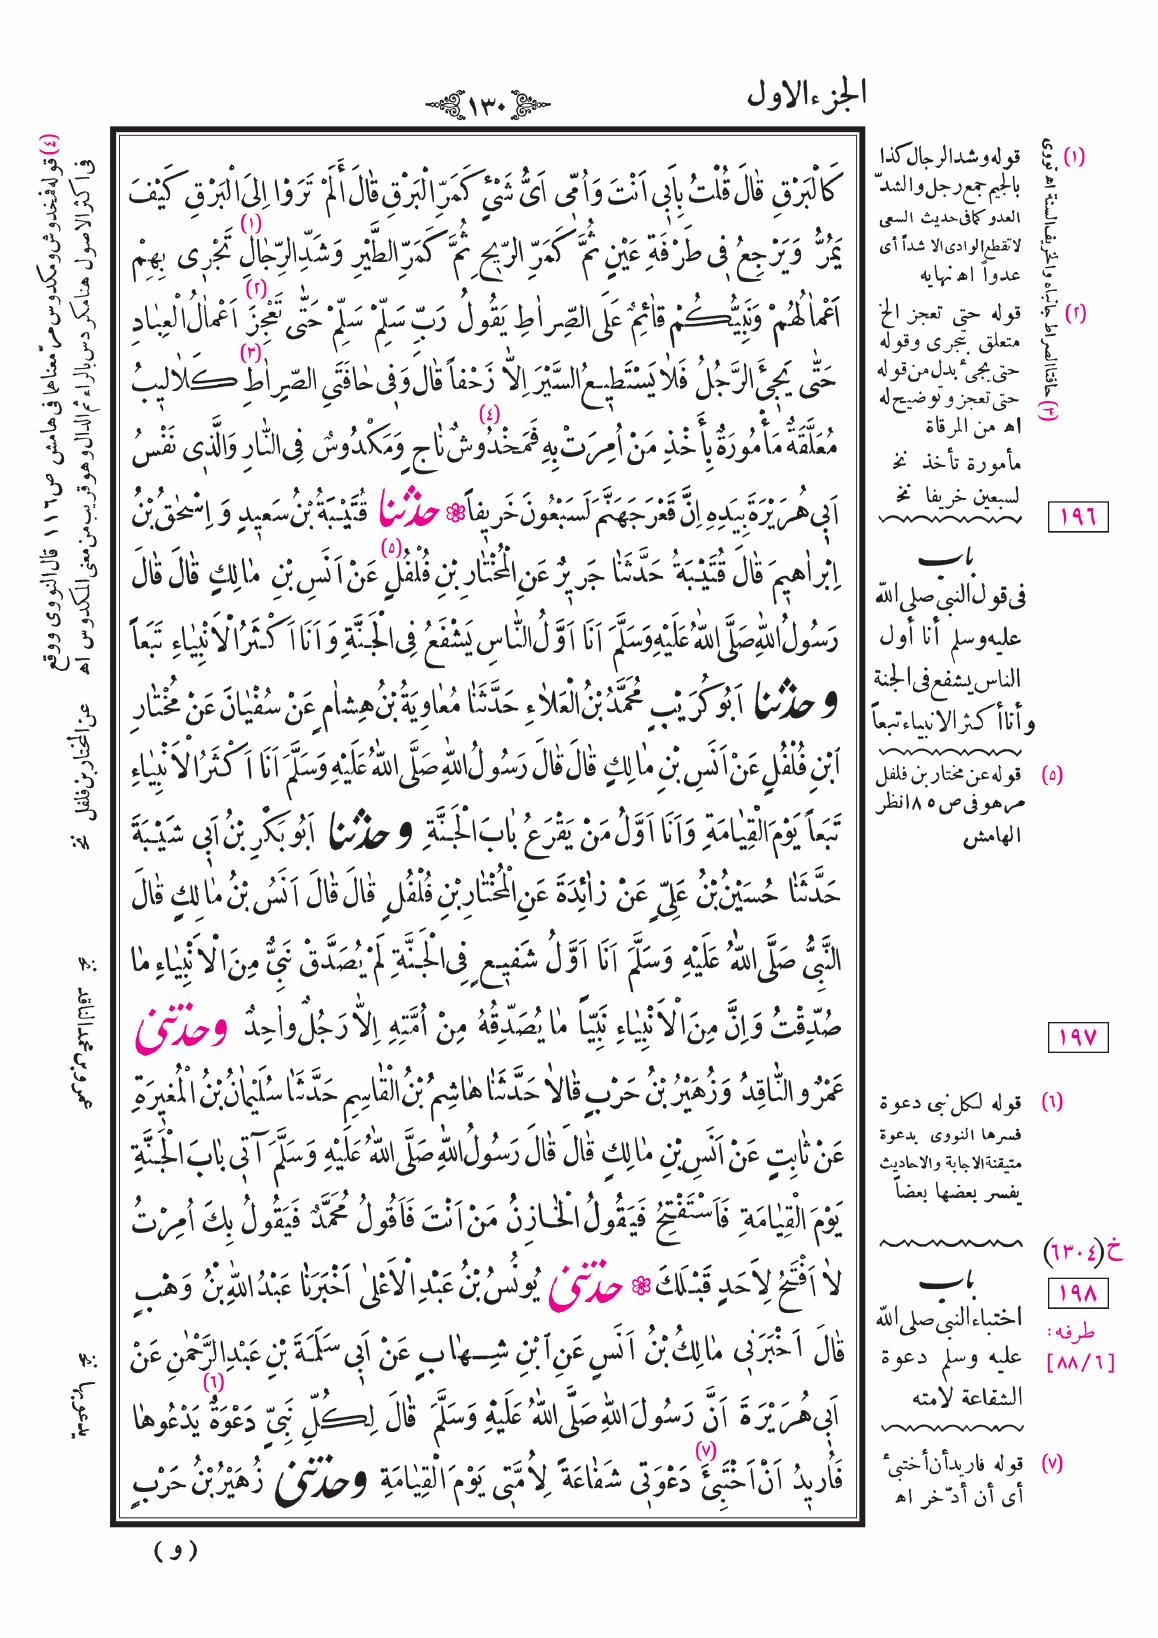 الجزء الاول
١٣٠
كَالْبَرْقِ قَالَ قُلْتُ بِأَبِي اَنْتَ وَاُمِّي اَيُّ شَيْءٍ كَمَرِّ الْبَرْقِ قَالَ أَلَمْ تَرَوْا اِلَى الْبَرْقِ كَيْفَ
يَمُرُّ وَيَرْجِعُ فِي طَرْفَةِ عَيْنٍ ثُمَّ كَمَرِّ الرِّيحِ ثُمَّ كَمَرِّ الطَّيْرِ وَشَدِّ الرِّجَالِ (١) تَجْرِي بِهِمْ
اَعْمَالُهُمْ وَنَبِيُّكُمْ قَائِمٌ عَلَى الصِّرَاطِ يَقُولُ رَبِّ سَلِّمْ سَلِّمْ حَتَّى (٢) تَعْجِزَ اَعْمَالُ الْعِبَادِ
حَتَّى يَجِيءَ الرَّجُلُ فَلَا يَسْتَطِيعُ السَّيْرَ اِلَّا زَحْفاً قَالَ وَفِي حَافَتَيِ (٣) الصِّرَاطِ كَلَالِيبُ
مُعَلَّقَةٌ مَأْمُورَةٌ بِأَخْذِ مَنْ اُمِرَتْ بِهِ فَمَخْدُوشٌ (٤) نَاجٍ وَمَكْدُوسٌ فِي النَّارِ وَالَّذِي نَفْسُ
اَبِي هُرَيْرَةَ بِيَدِهِ اِنَّ قَعْرَ جَهَنَّمَ لَسَبْعُونَ خَرِيفاً ❁ حدثنا قُتَيْبَةُ بْنُ سَعِيدٍ وَ اِسْحٰقُ بْنُ
اِبْرَاهِيمَ قَالَ قُتَيْبَةُ حَدَّثَنَا جَرِيرٌ عَنِ الْمُخْتَارِ بْنِ فُلْفُلٍ (٥) عَنْ اَنَسِ بْنِ مَالِكٍ قَالَ قَالَ
رَسُولُ اللّٰهِ صَلَّى اللّٰهُ عَلَيْهِ وَسَلَّمَ اَنَا اَوَّلُ النَّاسِ يَشْفَعُ فِي الْجَنَّةِ وَ اَنَا اَكْثَرُ الْاَنْبِيَاءِ تَبَعاً
و حدثنا اَبُو كُرَيْبٍ مُحَمَّدُ بْنُ الْعَلَاءِ حَدَّثَنَا مُعَاوِيَةُ بْنُ هِشَامٍ عَنْ سُفْيَانَ عَنْ مُخْتَارِ
ابْنِ فُلْفُلٍ عَنْ اَنَسِ بْنِ مَالِكٍ قَالَ قَالَ رَسُولُ اللّٰهِ صَلَّى اللّٰهُ عَلَيْهِ وَسَلَّمَ اَنَا اَكْثَرُ الْاَنْبِيَاءِ
تَبَعاً يَوْمَ الْقِيَامَةِ وَاَنَا اَوَّلُ مَنْ يَقْرَعُ بَابَ الْجَنَّةِ و حدثنا اَبُو بَكْرِ بْنُ اَبِي شَيْبَةَ
حَدَّثَنَا حُسَيْنُ بْنُ عَلِيٍّ عَنْ زَائِدَةَ عَنِ الْمُخْتَارِ بْنِ فُلْفُلٍ قَالَ قَالَ اَنَسُ بْنُ مَالِكٍ قَالَ
النَّبِيُّ صَلَّى اللّٰهُ عَلَيْهِ وَسَلَّمَ اَنَا اَوَّلُ شَفِيعٍ فِي الْجَنَّةِ لَمْ يُصَدَّقْ نَبِيٌّ مِنَ الْاَنْبِيَاءِ مَا
صُدِّقْتُ وَاِنَّ مِنَ الْاَنْبِيَاءِ نَبِيّاً مَا يُصَدِّقُهُ مِنْ اُمَّتِهِ اِلَّا رَجُلٌ وَاحِدٌ وحدثني
عَمْرٌو النَّاقِدُ وَزُهَيْرُ بْنُ حَرْبٍ قَالَا حَدَّثَنَا هَاشِمُ بْنُ الْقَاسِمِ حَدَّثَنَا سُلَيْمَانُ بْنُ الْمُغِيرَةِ
عَنْ ثَابِتٍ عَنْ اَنَسِ بْنِ مَالِكٍ قَالَ قَالَ رَسُولُ اللّٰهِ صَلَّى اللّٰهُ عَلَيْهِ وَسَلَّمَ آتِي بَابَ الْجَنَّةِ
يَوْمَ الْقِيَامَةِ فَاَسْتَفْتِحُ فَيَقُولُ الْخَازِنُ مَنْ اَنْتَ فَاَقُولُ مُحَمَّدٌ فَيَقُولُ بِكَ اُمِرْتُ
لَا اَفْتَحُ لِاَحَدٍ قَبْلَكَ ❁ حدثني يُونُسُ بْنُ عَبْدِ الْاَعْلَى اَخْبَرَنَا عَبْدُ اللّٰهِ بْنُ وَهْبٍ
قَالَ اَخْبَرَنِي مَالِكُ بْنُ اَنَسٍ عَنِ ابْنِ شِهَابٍ عَنْ اَبِي سَلَمَةَ بْنِ عَبْدِ الرَّحْمٰنِ عَنْ
اَبِي هُرَيْرَةَ اَنَّ رَسُولَ اللّٰهِ صَلَّى اللّٰهُ عَلَيْهِ وَسَلَّمَ قَالَ لِكُلِّ نَبِيٍّ دَعْوَةٌ (٦) يَدْعُوهَا
فَاُرِيدُ اَنْ اَخْتَبِئَ (٧) دَعْوَتِي شَفَاعَةً لِاُمَّتِي يَوْمَ الْقِيَامَةِ وحدثني زُهَيْرُ بْنُ حَرْبٍ
( و )
(١) قوله وشد الرجال كذا
بالجيم جمع رجل والشدّ
العدو كما فى حديث السعى
لا تقطع الوادى الا شداً أى
عدواً اه نهايه
(٢) قوله حتى تعجز الخ
متعلق بتجرى وقوله
حتى يجىء بدل من قوله
حتى تعجز وتوضيح له
اه من المرقاة
مأمورة تأخذ نخ
لسبعين خريفا نخ
١٩٦
باب
فى قول النبى صلى الله
عليه وسلم أنا أول
الناس يشفع فى الجنة
وأنا أكثر الانبياء تبعاً
(٥) قوله عن مختار بن فلفل
مر هو فى ص ١٨٥ انظر
الهامش
١٩٧
(٦) قوله لكل نبى دعوة
فسرها النووى بدعوة
متيقنة الاجابة والاحاديث
يفسر بعضها بعضاً
خ (٦٣٠٤)
١٩٨
باب
اختباء النبى صلى الله
عليه وسلم دعوة
الشفاعة لامته
طرفه:
[٨٨/٦]
(٧) قوله فاريد أن أختبىء
أى أن أدّخر اه
(٣) حافتا الصراط جانباه والخريف السنة اه نووى
(٤) قوله فمخدوش ومكدوس مرّ معناهما فى هامش ص ١١٦ قال النووى ووقع
فى اكثر الاصول هنا مكردس بالراء ثم الدال وهو قريب من معنى المكدوس اه
عن المختار بن فلفل نخ
عمرو بن محمد الناقد نخ
يدعو بها نخ